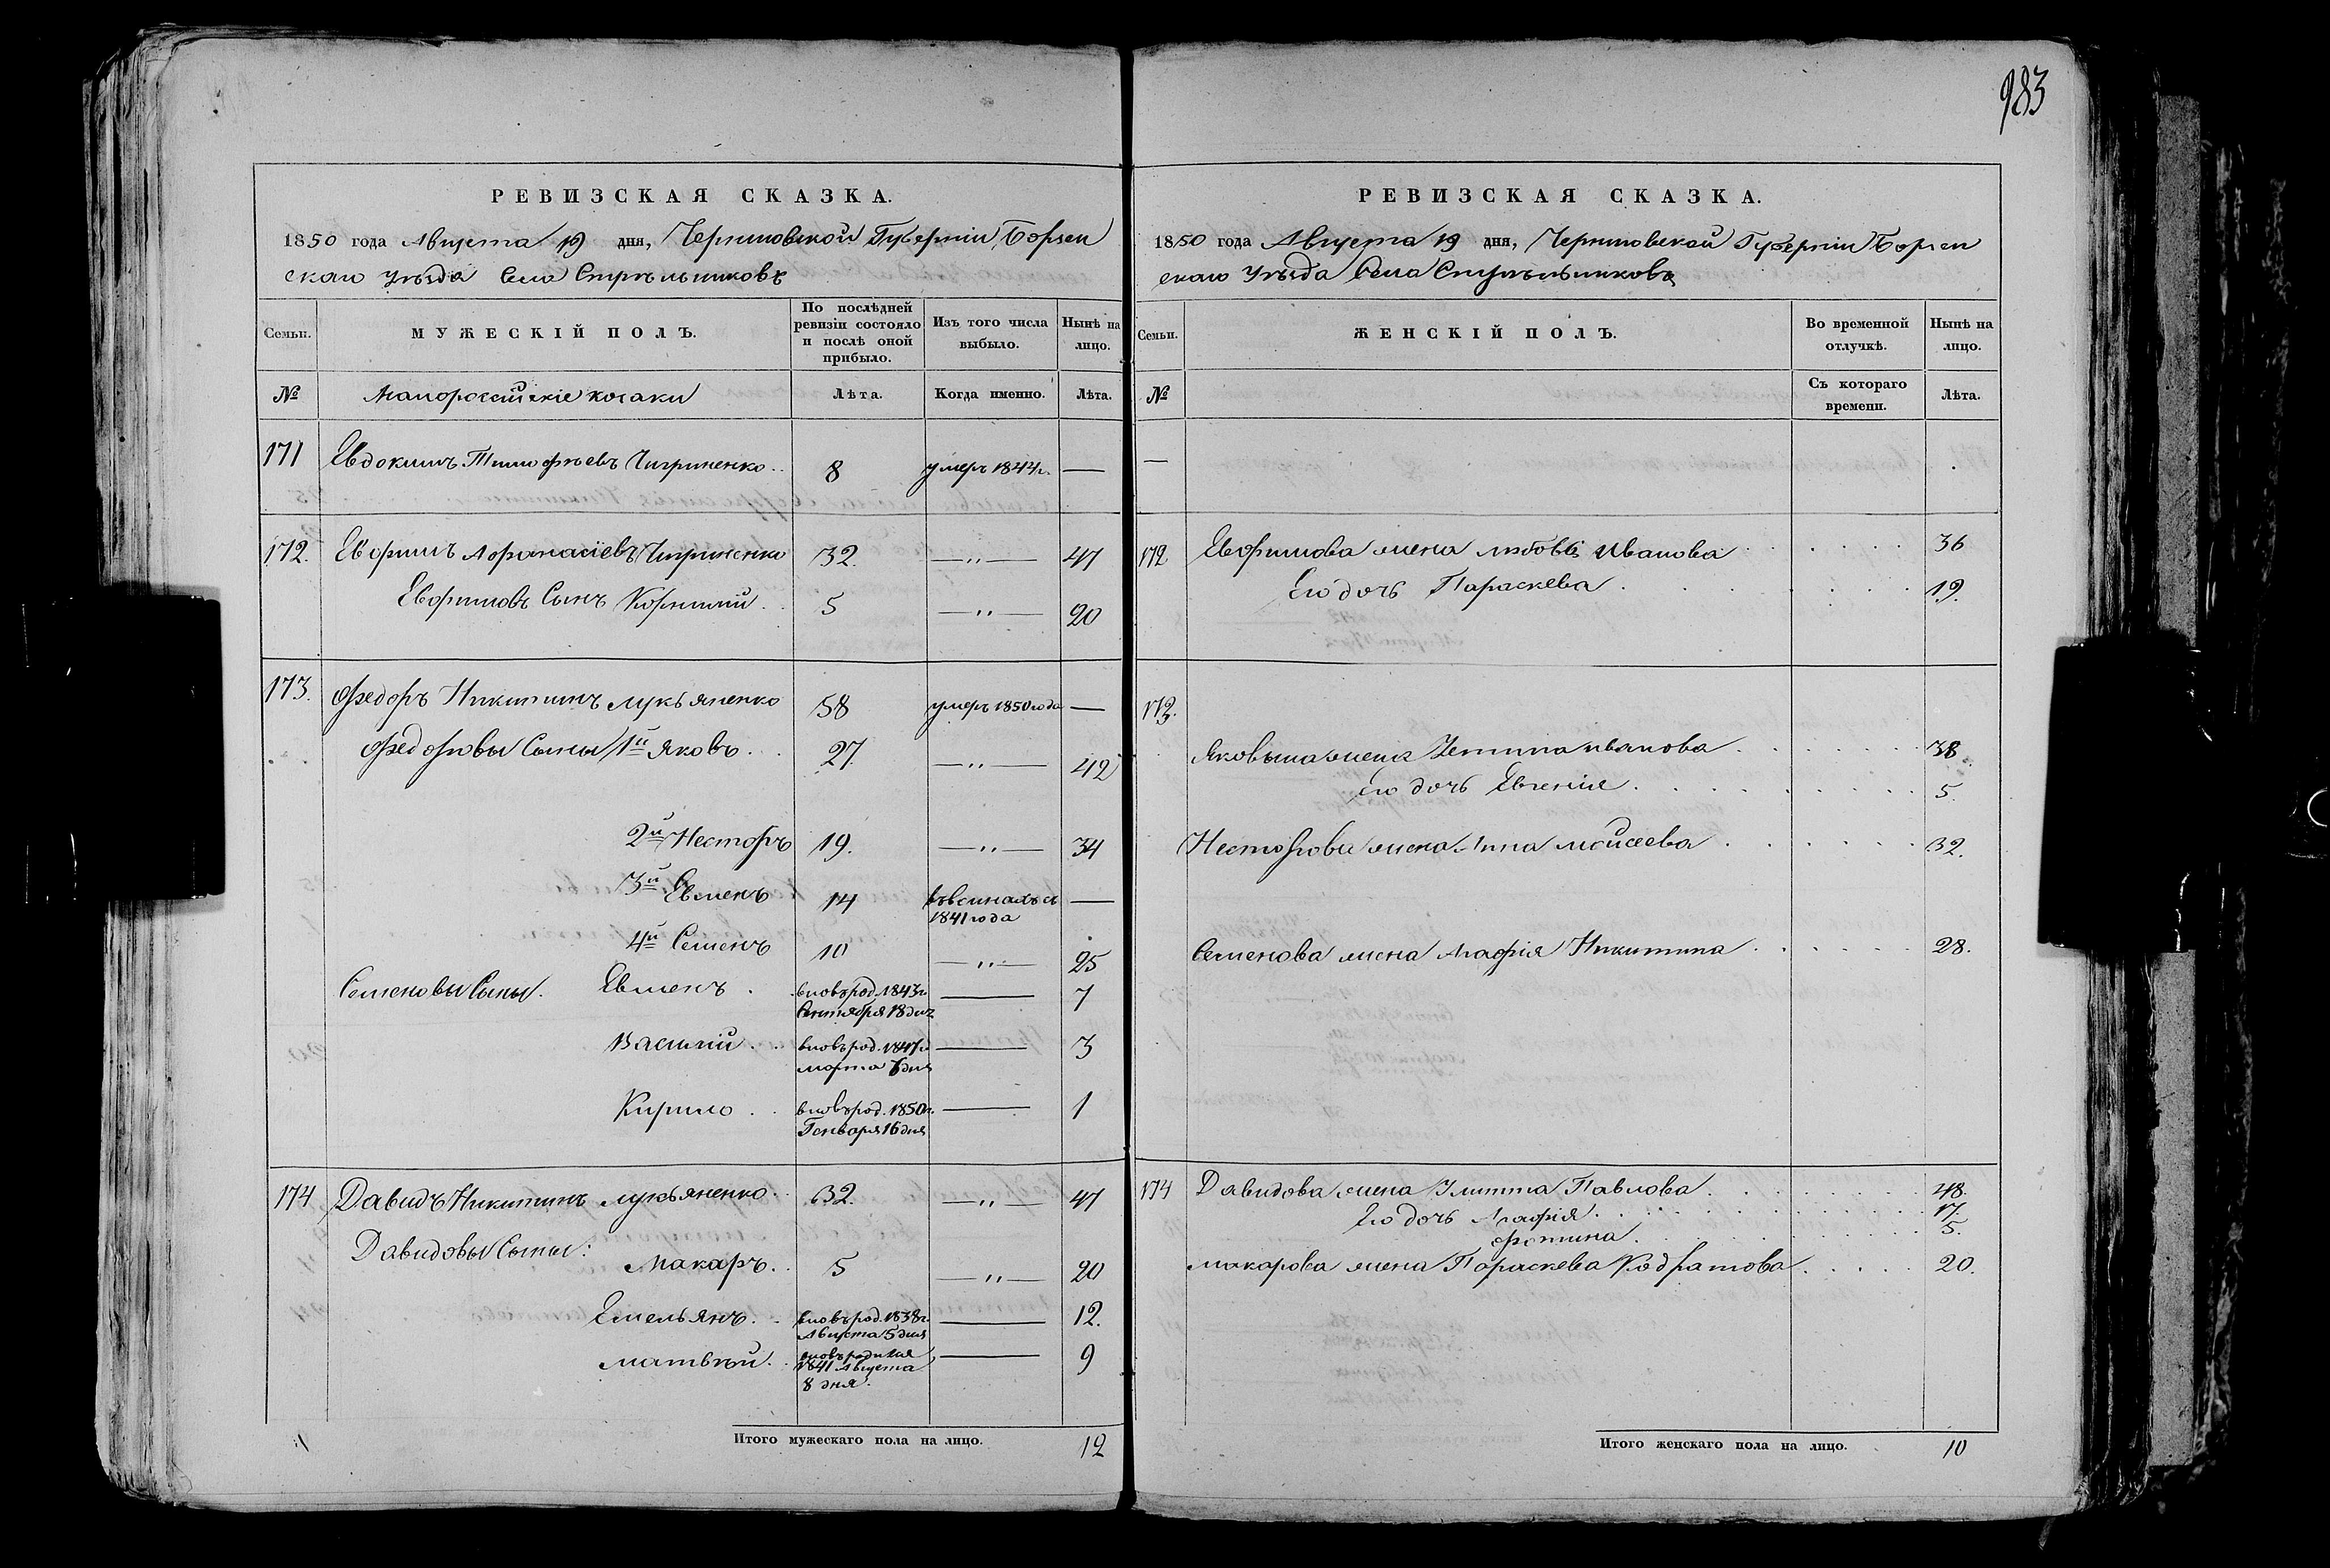 983
РЕВИЗСКАЯ СКАЗКА.
1850 года Августа 19 дня, Черниговской Губернiи Борзен
скаго уѣзда Села Стрѣльниковъ
Семьи. МУЖЕСКІЙ ПОЛЪ. По послѣдней ревизіи состояло и послѣ оной прибыло. Изъ того числа выбыло. Нынѣ на лицо.
№ Малороссiйскiе козаки Лѣта. Когда именно. Лѣта.
171 Евдокимъ Тимофѣевъ Чигриненко 8 умеръ 1844г. —
172. Евфимъ Афанасiевъ Чигриненко 32. —"— 47
Евфимовъ Сынъ Корнилiй 5 —"— 20
173. Федоръ Никитинъ Лукьяненко 58 умеръ 1850 года —
Федоровы Сыны 1й Яковъ 27 —"— 42
2й Несторъ 19. —"— 34
3й Евменъ 14 1841 года —
4й Семенъ 10 —"— 25
Семеновы Сыны. Евменъ вновьрод. 1843г. — 7
Сентября 18 дня
Василiй вновьрод. 1847г — 3
марта 6 дня
Кирило вновьрод. 1850г. — 1
Генваря 16 дня
174 Давидъ Никитинъ Лукьяненко 32. —"— 47
Давидовы Сыны: Макаръ 5 —"— 20
Емельянъ вновьрод. 1838г. — 12.
Августа 5 дня
Матвѣй — 9
1841 Августа
8 дня.
Итого мужескаго пола на лицо. 12
РЕВИЗСКАЯ СКАЗКА.
1850 года Августа 19 дня, Черниговской Губернiи Борзен
скаго Уѣзда Села Стрѣльниковъ
Семьи. ЖЕНСКІЙ ПОЛЪ. Во временной отлучкѣ. Нынѣ на лицо.
№ Съ котораго времени. Лѣта.
—
172 Евфимова жена Любовь Иванова 36
Его дочь Параскева 19.
173.
Яковыма жена Иванова 38
его дочь Евгенiя 5.
Несторова жена Анна Моисеева 32.
Семенова жена Агафiя Никитина 28.
174 Давидова жена Улитта Павлова 48.
Его дочь Агафiя 17.
Фотина 5.
Макарова жена Параскева Кодратова 20.
Итого женскаго пола на лицо. 10